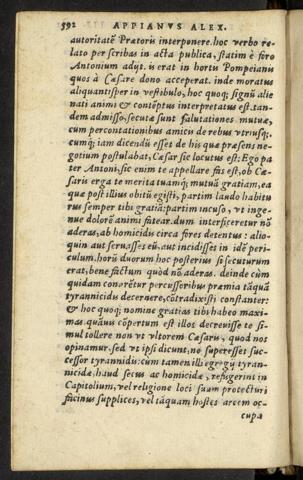 592 APPIANVS ALEX.
autoritatē Prætoris interponere. hoc verbo re-
lato per scribas in acta publica, statim è foro
Antonium adijt. is erat in hortis Pompeianis
quos à Cæsare dono acceperat. inde moratus
aliquantisper in vestibulo, hoc quoq; signū alie
nati animi & contēptus interpretatus est. tan-
dem admisso, secutæ sunt salutationes mutuæ,
cum percontationibus amicis de rebus vtriusq;.
cumq; iam dicendū esset de his quæ præsens ne-
gotium postulabat, Cæsar sic locutus est: Ego pa
ter Antoni, sic enim te appellare fas est, ob Cæ-
saris erga te merita tuamq; mutuā gratiam, ea
quæ post illius obitū egisti, partim laudo habitu
rus semper tibi gratiā: partim incuso, vt inge-
nuè dolorē animi fatear. dum interficeretur nō
aderas, ab homicidis circa fores detentus: alio-
quin aut seruasses eū, aut incidisses in idē peri-
culum. horū duorum hoc posterius si secuturum
erat, bene factum quòd nō aderas. deinde cùm
quidam conarētur percussoribus præmia tāquā
tyrannicidis decernere, cōtradixisti constanter:
& hoc quoq; nomine gratias tibi habeo maxi-
mas. quāuis cōpertum est illos decreuisse te si-
mul tollere non vt vltorem Cæsaris, quod nos
opinamur, sed vt ipsi dicunt, ne superesset suc-
cessor tyrannidis: cùm tamen illi egregij tyran-
nicidæ, haud secus ac homicidæ, refugerint in
Capitolium, vel religione loci suam protecturi
facinus supplices, vel tāquam hostes arcem oc-
cupa